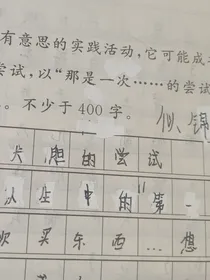 有意思的实践活动，它可能成
尝试，以“那是一次……的尝试
。不少于 400 字。
大胆的尝试
人生中的“第一
欢买东西…想